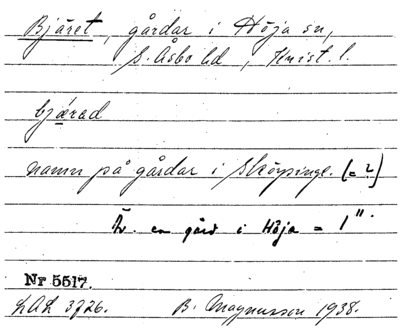 Bjäret, gårdar i Höja sn,
S. Åsbo hd, Krist. l.
bjærad
namn på gårdar i Skörpinge. (= ?)
Äv. en gård i Höja = 1".
Nr 5517.
LAL 3726. B. Magnusson 1938.